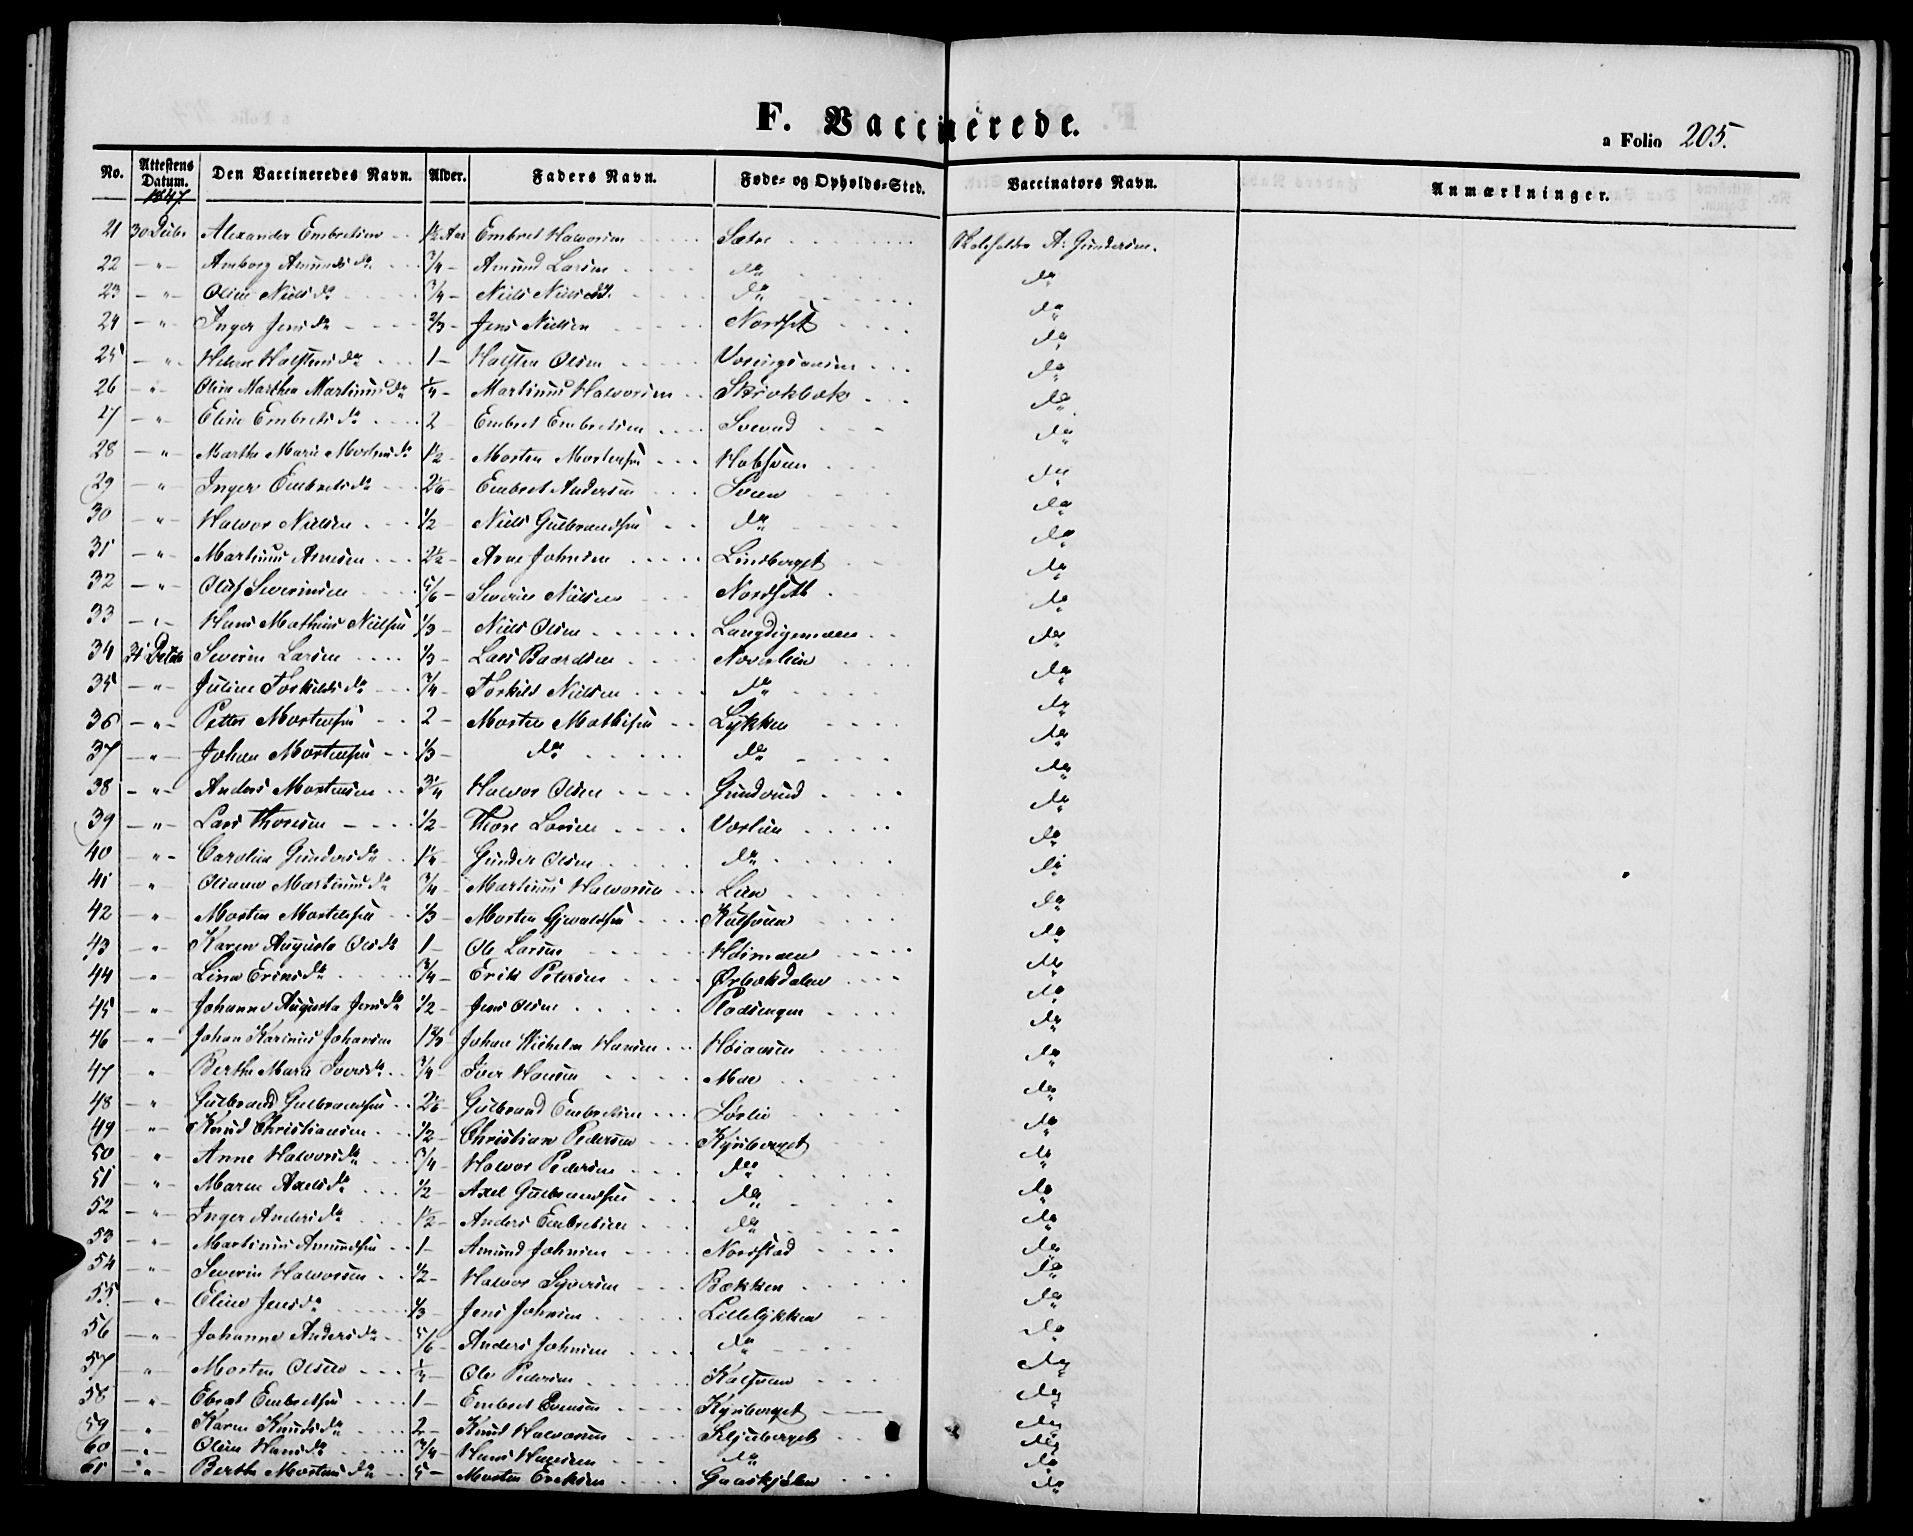 F. Vaccinerede.
a Folio 205.
No. Attestens Datum. 1847. Den Vaccineredes Navn. Alder. Faders Navn. Føde- og Opholds-Sted. Vaccinators Navn. Anmærkninger.
21 30 Alexander Embretsen 1½ Aar Embret Halvorsen Sætre A. Gundersen.
22 - " - Amborg Amunds da 3/4 - Amund Larsen do do
23 - " - Oline Niels da 3/4 - Niels do do
24 - " - Inger Jens da 2/3 - Jens Nielsen Nordset do
25 - " - Helene Halstens da 1 - Halsten Olsen do
26 - " - Oline Marthea Martinus da 1/4 - Martinus Halvorsen Skrokbek do
27 - " - Eline Embrets da 2 Embret Embretsen do
28 - " - Marthe Marie Mortens da 1½ - Morten Mortensen do
29 - " - Inger Embrets da - Embret Andersen Sveen do
30 - " - Halvor Nielsen 1/2 - Niels Gulbrandsen do do
31 - " - Martinus Arnesen 2½ - Arne Johnsen Lindberget do
32 - " - Oluf Severinsen 5/6 - Severin Nielsen Nordseth do
33 - " - Hans Mathias Nielsen 1/3 - Niels Olsen do
34 31 Severin Larsen 1/3 - Lars Baardsen do
35 - " - Juline Torkilds da 3/4 - Torkild Nielsen do do
36 - " - Petter Mortensen 2 - Morten Mathisen Lykken do
37 - " - Johan Mortensen 1/3 - do do do
38 - " - Anders Mortensen 3/4 Halvor Olsen do
39 - " - Lars Thoresen 1/2 - Thore Larsen do
40 - " - Caroline Gunders da 1¼ - Gunder Olsen do do
41 " Oliane Martinus da 3/4 - Martinus Halvorsen Lien do
42 - " - Morten Mortensen 1/3 - Morten do
43 - " - Karen Augusta Ols da 1 - Ole Larsen Høimoen do
44 - " Lina Eriks da 3/4 - Erik Petersen Ørbækdalen do
45 - " Johanne Augusta Jens da 1/2 - Jens Olsen Pladsengen do
46 - " Johan Karinus Johansen Johan Wilhelm Hansen do
47 - " Berthe Marie Ivers da 3/4 - Iver Hansen Moe do
48 - " Gulbrand Gulbrandsen - Gulbrand Embretsen Sørlie do
49 - " - Knud Christiansen 1/2 - Christian Pedersen Kynberget do
50 - " - Anne Halvors da 3/4 - Halvor Pedersen do do
51 - " - Maren Axels da 1/2 - Axel Gulbrandsen do do
52 - " - Inger Anders da 1½ - Anders Embretsen do do
53 - " - Martinus Amundsen 1 - Amund Johnsen Nordstad do
54 - " - Severin Halvorsen 1/2 - Halvor Syversen Bækken do
55 - " - Eline Jens da 1/3 Jens Johnsen Lillelykken do
56 - " - Johanne Anders da 5/6 Anders Johnsen do do
57 - " - Morten Olsen - Ole Pedersen do
58 - " - Embretsen 1 - Embret Evensen Kynberget do
59 - " - Karen Knuds da 2 - Knud Halvorsen do
60 - " - Oline Hans da 3/4 - Hans Hansen do do
61 - " - Berthe Mortens da 5 - Morten Eriksen Gaaskjølen do